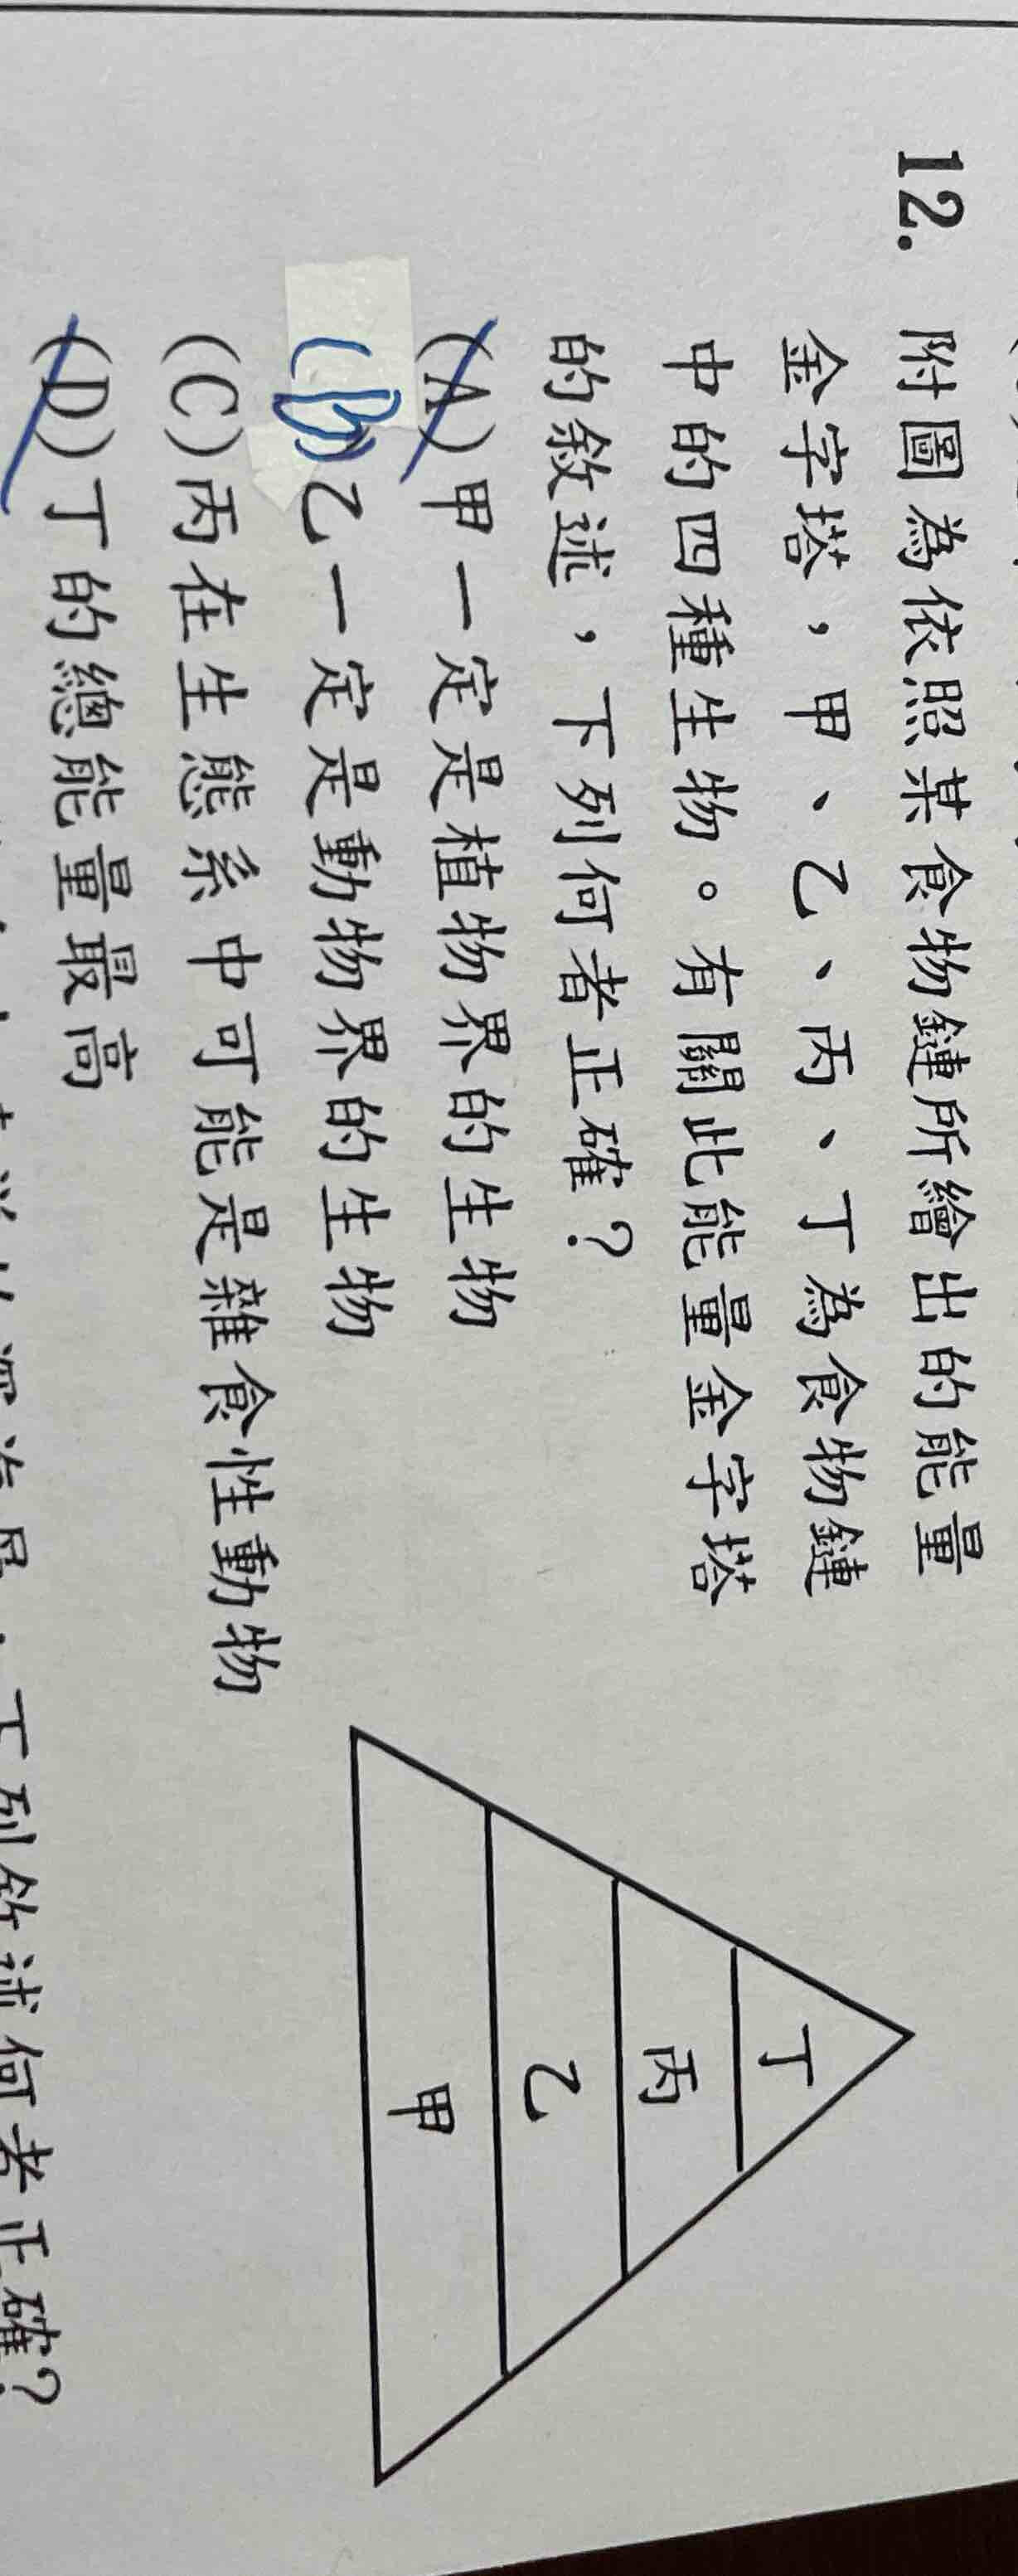 12. 附圖為依照某食物鏈所繪出的能量
金字塔，甲、乙、丙、丁為食物鏈
中的四種生物。有關此能量金字塔
的敘述，下列何者正確？
(A)甲一定是植物界的生物
(B)乙一定是動物界的生物
(C)丙在生態系中可能是雜食性動物
(D)丁的總能量最高
丁
丙
乙
甲
下列敘述何者正確？